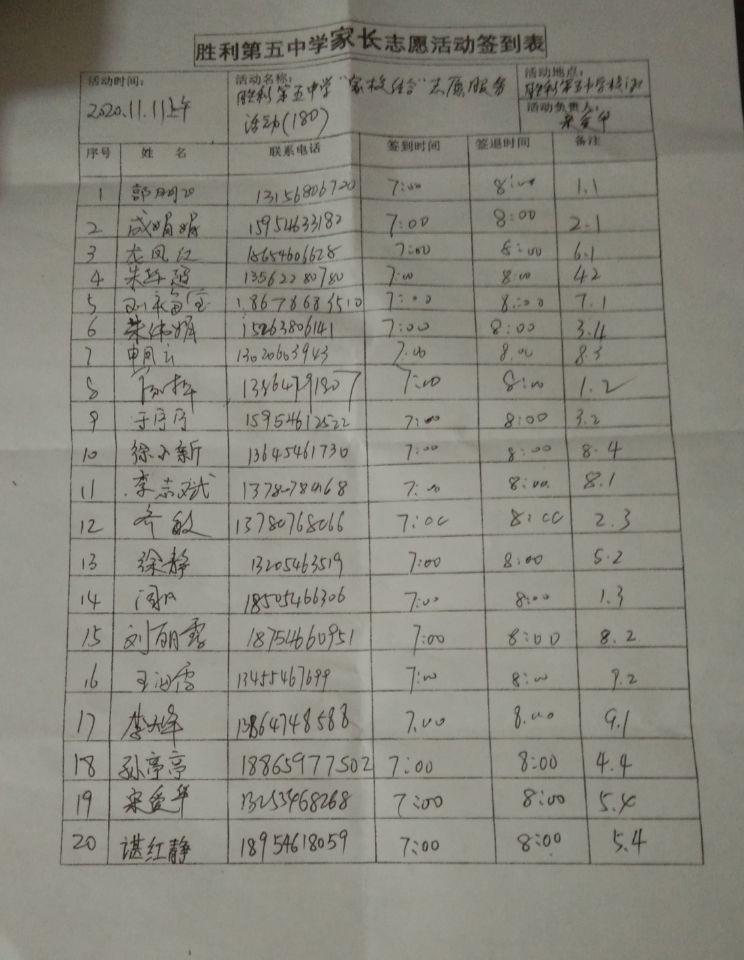 胜利第五中学家长志愿活动签到表
活动时间: 2020.11.11上午
活动名称: 胜利第五中学“家校结合”志愿服务活动(180)
活动地点: 胜利第五中学
活动负责人: 宋爱华
序号 姓名 联系电话 签到时间 签退时间 备注
1 13156806720 7:00 8:00 1.1
2 成娟娟 15954633182 7:00 8:00 2.1
3 尤凤红 18654606628 7:00 8:00 6.1
4 13562280780 7:00 8:00 4.2
5 18678683510 7:00 8:00 7.1
6 15263806141 7:00 8:00 3.4
7 13020603943 7:00 8:00 8.3
8 7:00 8:00 1.2
9 于丹丹 15954612522 7:00 8:00 3.2
10 13645461730 7:00 8:00 8.4
11 李志斌 7:00 8:00 8.1
12 齐敏 13780768066 7:00 8:00 2.3
13 徐静 13205463519 7:00 8:00 5.2
14 18505466306 7:00 8:00 1.3
15 刘丽霞 18754660951 7:00 8:00 8.2
16 13455467699 7:00 8:00 7.2
17 13864748588 7:00 8:00 9.1
18 孙亭亭 18865977502 7:00 8:00 4.4
19 宋爱华 13253468268 7:00 8:00 5.4
20 谌红静 18954618059 7:00 8:00 5.4